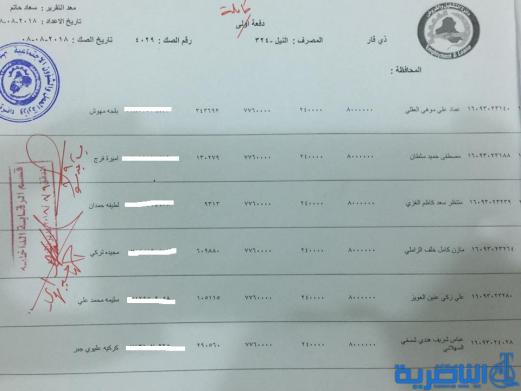 معد التقرير : سعاد حاتم
تاريخ الاعداد : ٢٠١٨-٠٨-٠٨
دفعة اولى
كاملة
ذي قار
المصرف : النيل -٣٢٤
رقم الصك : ٤٠٢٩
تاريخ الصك : ٢٠١٨-٠٨-٠٨
المحافظة :
١٦٠٩٣٠٢٣١٤٠ عماد علي موهي العقلي ٨٠٠٠٠٠٠ ٢٤٠٠٠٠ ٧٧٦٠٠٠٠ ٣٤٣٦٩٢ بلحه مهوش
١٦٠٩٣٠٢٣١٨٨ مصطفى حميد سلطان ٨٠٠٠٠٠٠ ٢٤٠٠٠٠ ٧٧٦٠٠٠٠ ١٣٠٢٧٩ اميرة فرج
١٦٠٩٣٠٢٣٢٣٩ منتظر سعد كاظم الغزي ٨٠٠٠٠٠٠ ٢٤٠٠٠٠ ٧٧٦٠٠٠٠ ٩٣١٣ لطيفه حمدان
١٦٠٩٣٠٢٣٢٦٤ مازن كامل خلف الزاملي ٨٠٠٠٠٠٠ ٢٤٠٠٠٠ ٧٧٦٠٠٠٠ ٦٠٩٨٨٠ مجيده تركي
١٦٠٩٣٠٢٣٢٨٠ علي زكي عنين العويز ٨٠٠٠٠٠٠ ٢٤٠٠٠٠ ٧٧٦٠٠٠٠ ١٠٥٢١٥ سليمه محمد علي
١٦٠٩٣٠٢٤٠٢٨ عباس شريف هندي شمخي السهلاني ٨٠٠٠٠٠٠ ٢٤٠٠٠٠ ٧٧٦٠٠٠٠ ٢٩٠٥٦٠ كركيه عليوي جبر
قسم الرقابة الداخلية
الناصرية